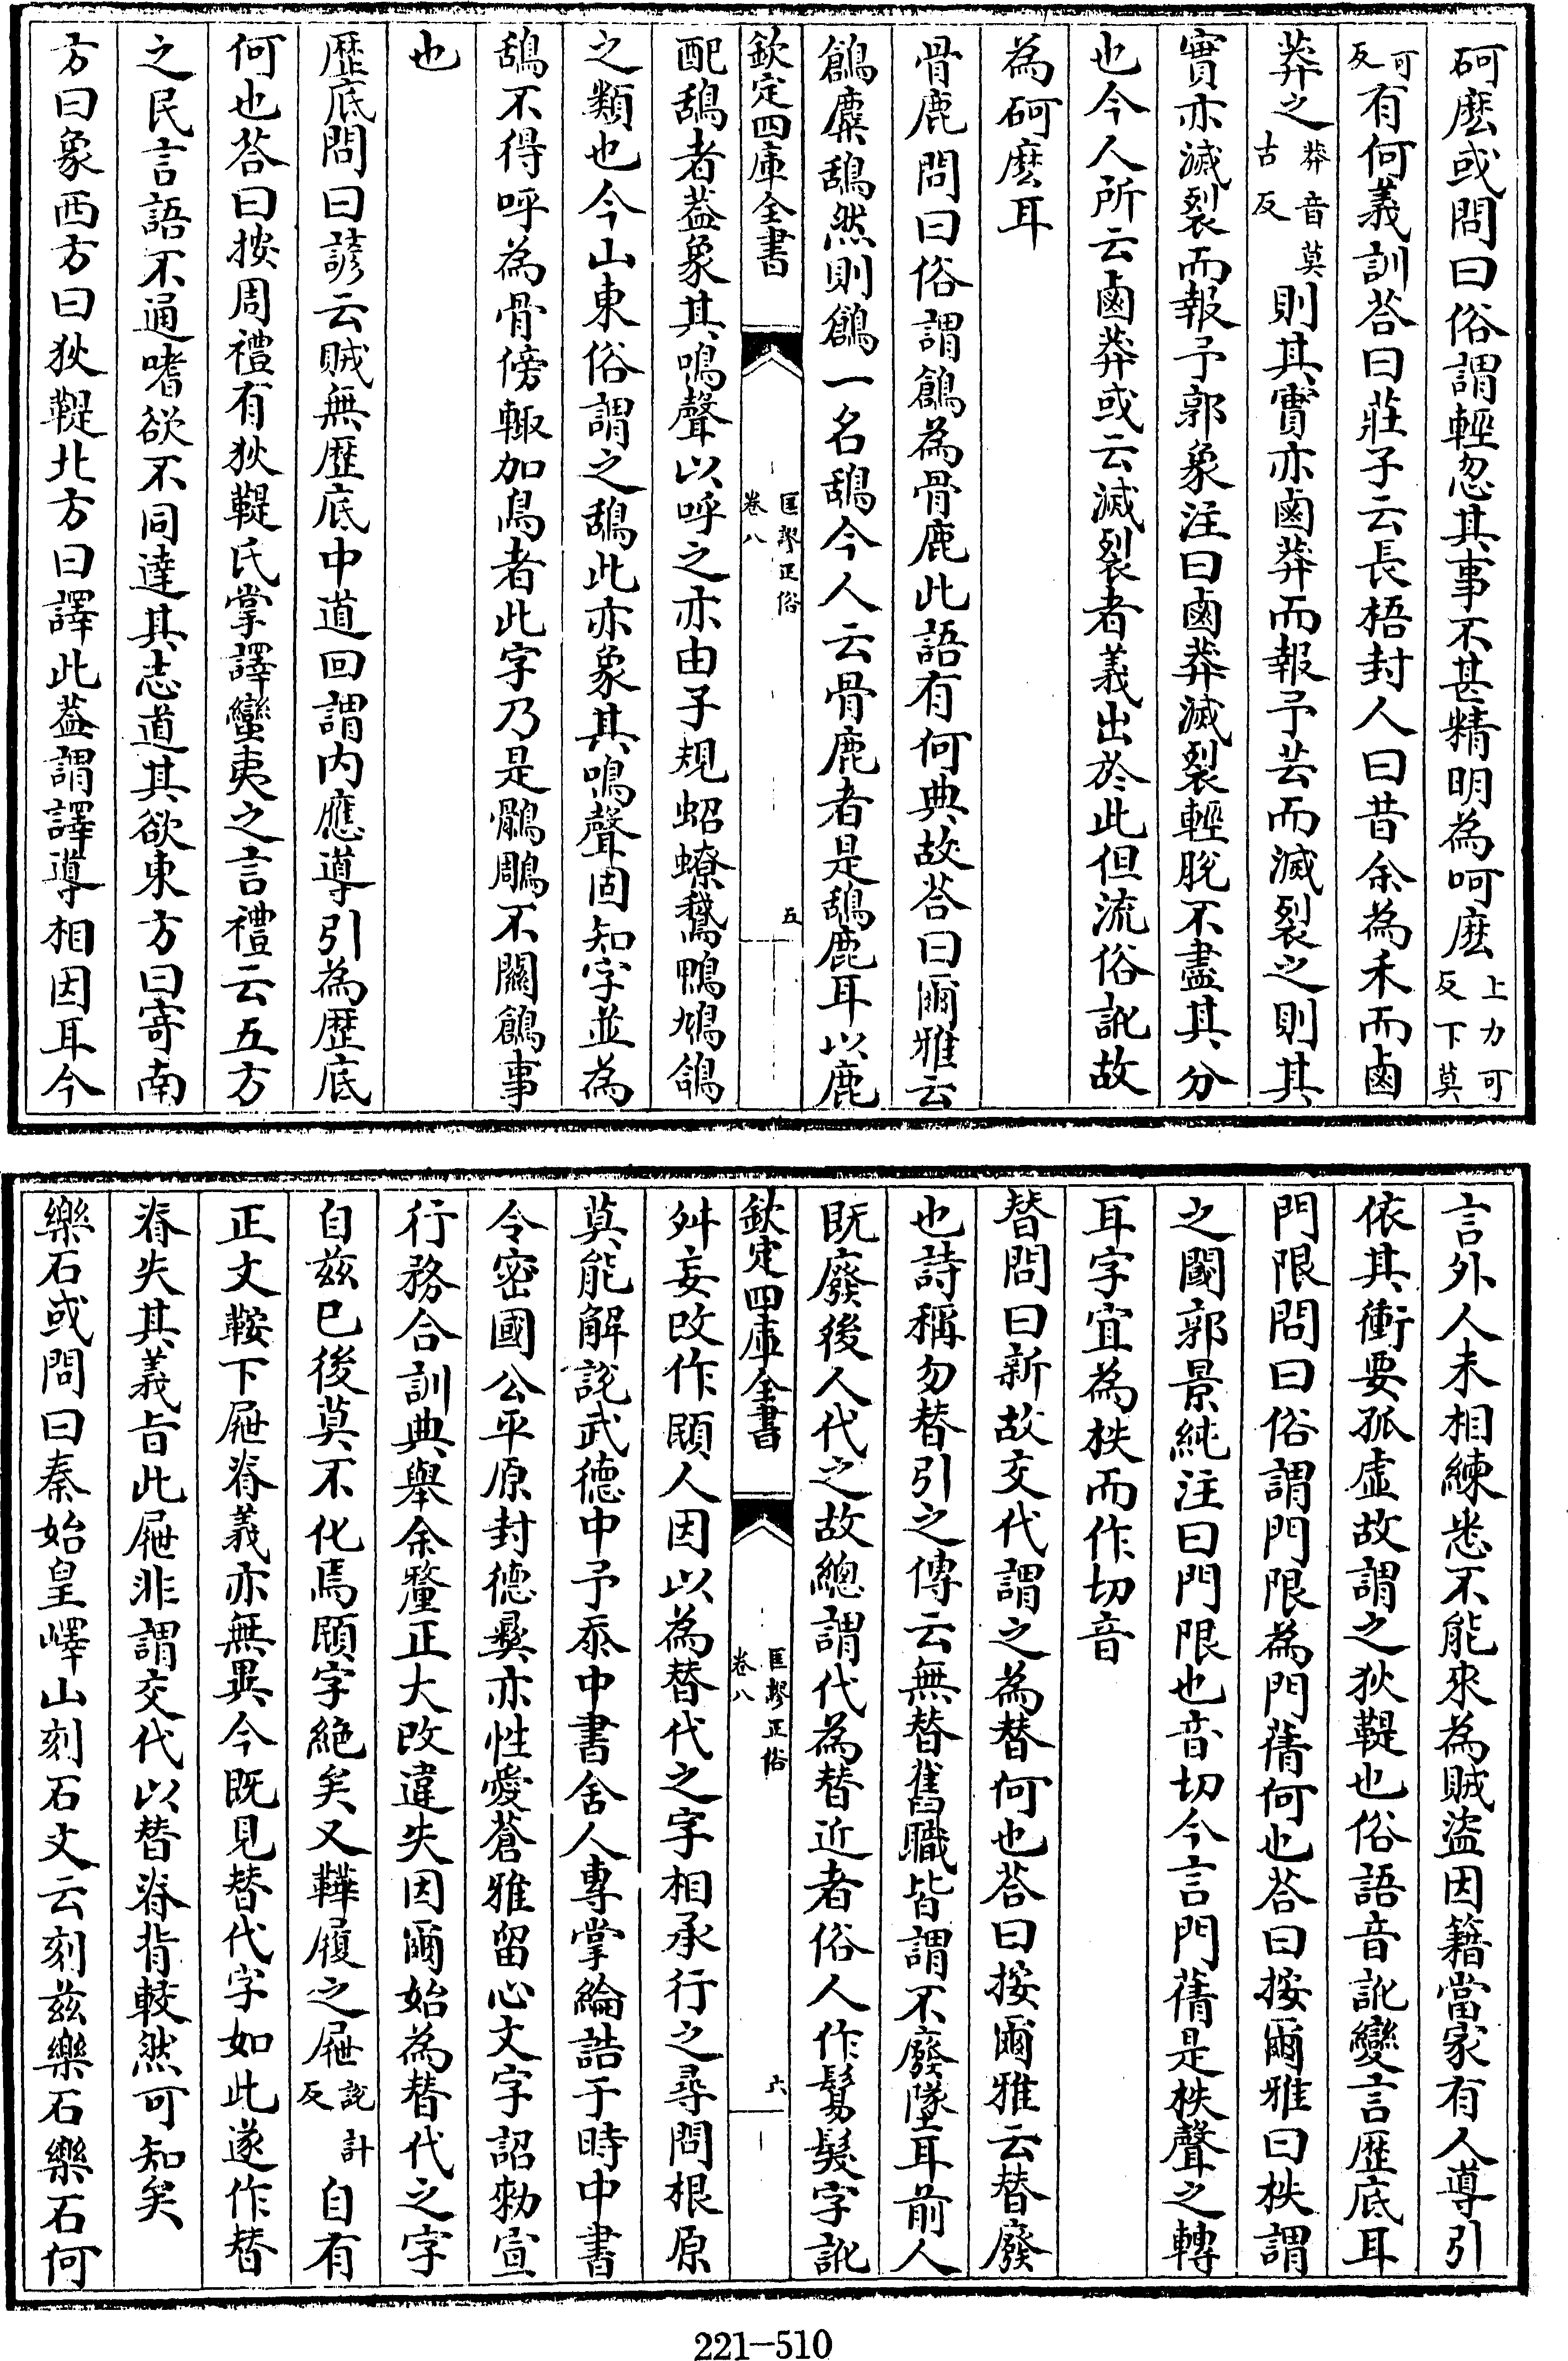 砢麽或問曰俗謂輕忽其事不甚精明為呵麽上力可反下莫
可反有何義訓荅曰莊子云長梧封人曰昔余為禾而鹵
莽之莽音莫古反則其實亦鹵莽而報予芸而滅裂之則其
實亦滅裂而報予郭象注曰鹵莽滅裂輕脫不盡其分
也今人所云鹵莽或云滅裂者義出於此但流俗訛故
為砢麽耳
骨鹿問曰俗謂鶬為骨鹿此語有何典故荅曰爾雅云
鶬麋鴰然則鶬一名鴰今人云骨鹿者是鴰鹿耳以鹿
欽定四庫全書
匡謬正俗
卷八
五
配鴰者葢象其鳴聲以呼之亦由子規蛁蟟鵞鴨鳩鴿
之類也今山東俗謂之鴰此亦象其鳴聲固知字並為
鴰不得呼為骨傍輙加鳥者此字乃是鶻鵰不關鶬事
也
歴底問曰諺云賊無歴底中道回謂内應導引為歴底
何也荅曰按周禮有狄鞮氏掌譯蠻夷之言禮云五方
之民言語不通嗜欲不同達其志道其欲東方曰寄南
方曰象西方曰狄鞮北方曰譯此葢謂譯導相因耳今
言外人未相練悉不能來為賊盗因籍當家有人導引
依其衝要孤虚故謂之狄鞮也俗語音訛變言歴底耳
門限問曰俗謂門限為門蒨何也荅曰按爾雅曰柣謂
之閾郭景純注曰門限也音切今言門蒨是柣聲之轉
耳字宜為柣而作切音
替問曰新故交代謂之為替何也荅曰按爾雅云替廢
也詩稱勿替引之傳云無替舊職皆謂不廢墜耳前人
既廢後人代之故總謂代為替近者俗人作鬄髮字訛
欽定四庫全書
匡謬正俗
卷八
六
舛妄改作頤人因以為替代之字相承行之尋問根原
莫能解說武德中予忝中書舍人專掌綸誥于時中書
令密國公平原封德彝亦性愛蒼雅留心文字詔勑宣
行務合訓典舉余釐正大改違失因爾始為替代之字
自兹已後莫不化焉頤字絶矣又鞾履之屜說計反自有
正文鞍下屜脊義亦無異今既見替代字如此遂作替
脊失其義旨此屜非謂交代以替脊背較然可知矣
樂石或問曰秦始皇嶧山刻石文云刻兹樂石樂石何
221-510